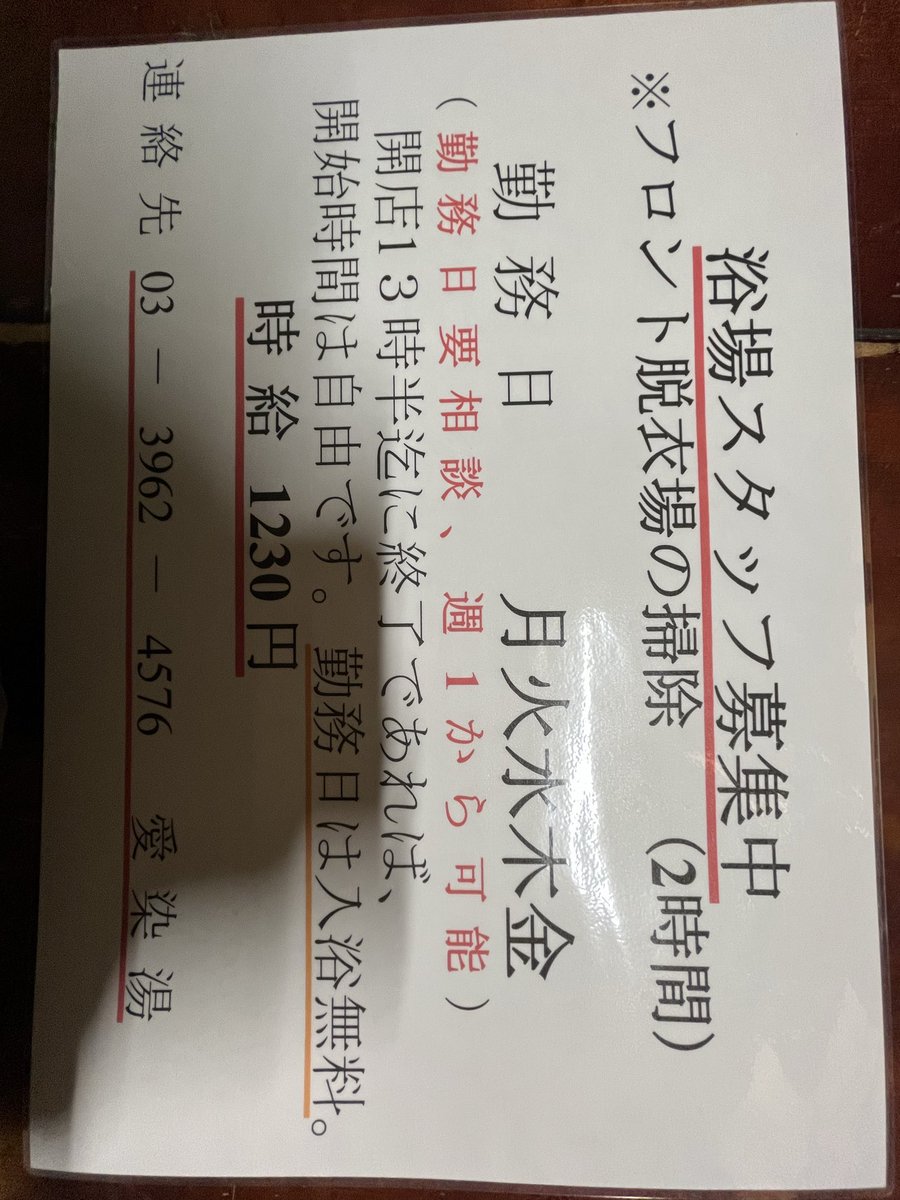 浴場スタッフ募集中
※フロント脱衣場の掃除 (2時間)
勤務日 月火水木金
(勤務日要相談、週1から可能)
開店13時半迄に終了であれば、
開始時間は自由です。勤務日は入浴無料。
時給1230円
連絡先 03－3962－4576 愛染湯